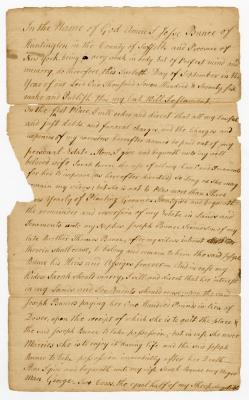 In the Name of God Amen I Jesse Brunce of
Huntington in the County of Suffolk and Province of
New York being very weak in body but of Perfect mind and
memory do therefore this Day of September in the
Year of our Lord One Thousand Seven Hundred & Seventy
make and Publish this my last Will & Testament
In the first Place I will order and direct that all my funeral
and just debts and funeral charges and the charges and
expences of my executors hereafter named be paid out of my
personal Estate. Also I give and bequeath unto my well
beloved wife Sarah
for her to improve as hereafter so long as she may
remain my widow; but she is not to Plow more than
Acres Yearly of Planting Ground. Also I give and bequeath
the remainder and reversion of my Estate in Lands and
Tenaments unto my Nephew Joseph Brunce
late brother Thomas Brunce, after my widows interest
therein shall cease, to belong and remain to him the said Joseph
Brunce his Heirs and Assigns forever. And in case my
Widow Sarah should marry I will and direct that her interest
in my Lands and Tenaments should
Joseph Brunce paying her One Hundred Pounds in lieu of
Dower, upon the receipt of which she is to quit the place &
the said Joseph Brunce to take possession, but in case she never
Marries she is to enjoy it during life and the said Joseph
Brunce to take possession immediately after her Death.
Also I give and bequeath unto my wife Sarah Brunce my Negro
Man George, two Cows, the equal half of my Sheep